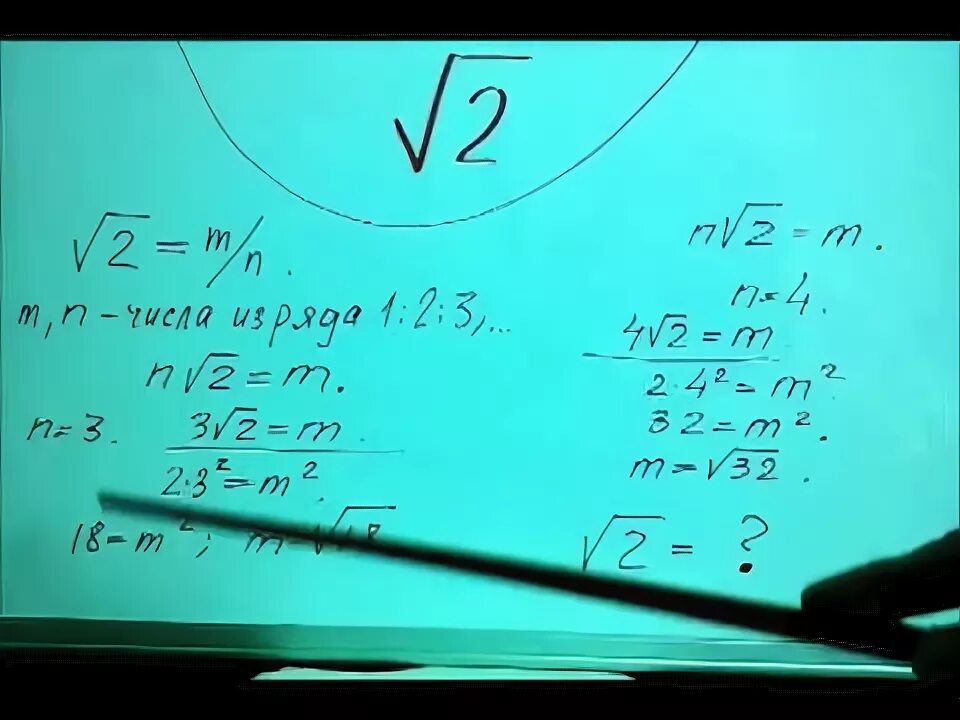 √2
√2 = m/n.
m, n - числа из ряда 1:2:3,...
n√2 = m.
n = 3. 3√2 = m.
2·3² = m².
18 = m²; m = √18
n√2 = m.
n = 4.
4√2 = m
2·4² = m²
32 = m².
m = √32.
√2 = ?